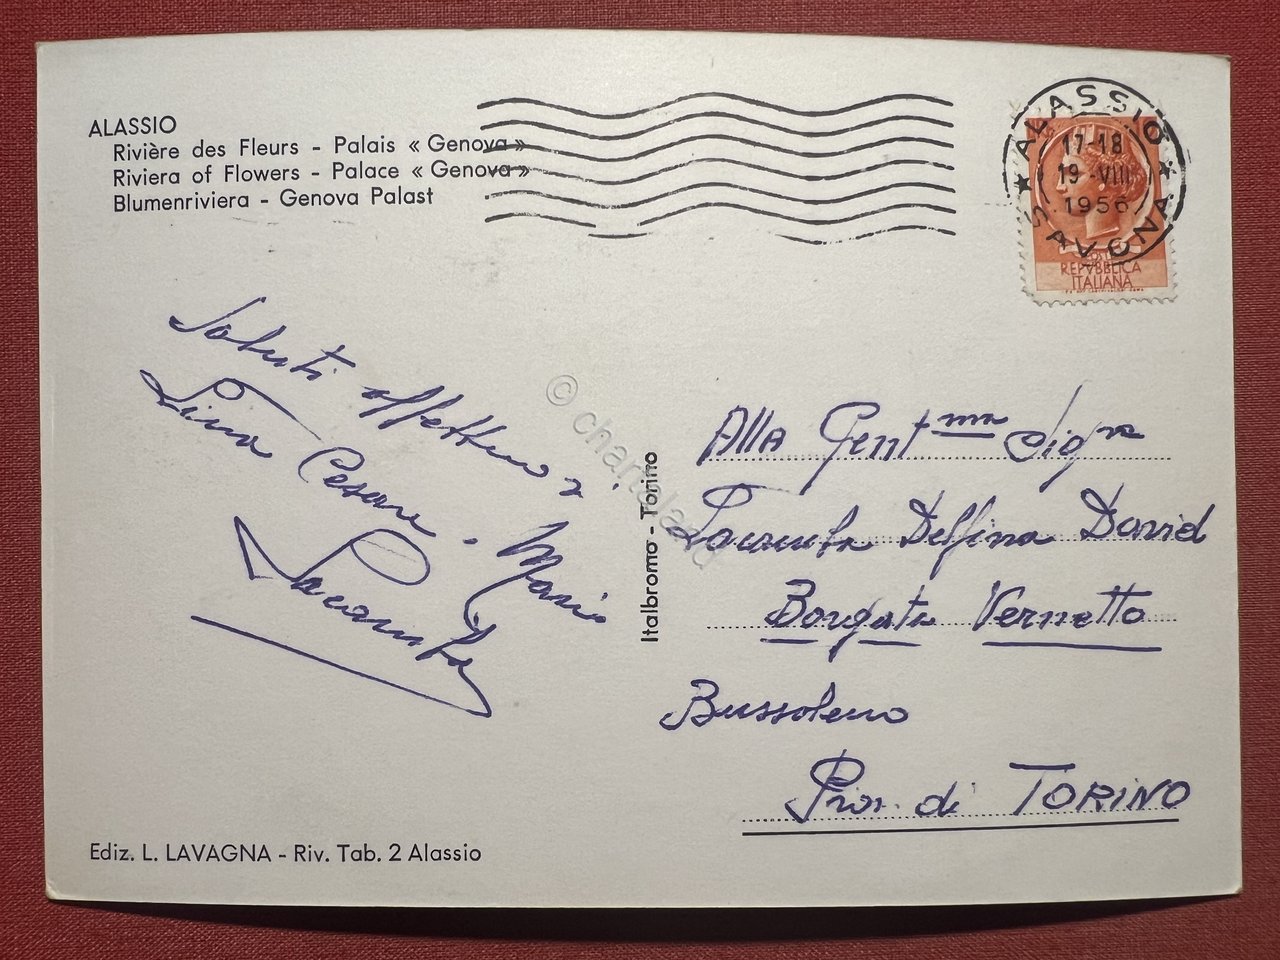 ALASSIO
Rivière des Fleurs - Palais « Genova »
Riviera of Flowers - Palace « Genova »
Blumenriviera - Genova Palast
ALASSIO
17-18
19-VIII
1956
SAVONA
POSTE
REPVBBLICA
ITALIANA
Saluti affettuosi
Lina Cesare - Mario
© chartaland
Italbromo - Torino
Alla Gent.ma Sig.ra
Delfina David
Borgata Vernetto
Bussoleno
Prov. di TORINO
Ediz. L. LAVAGNA - Riv. Tab. 2 Alassio